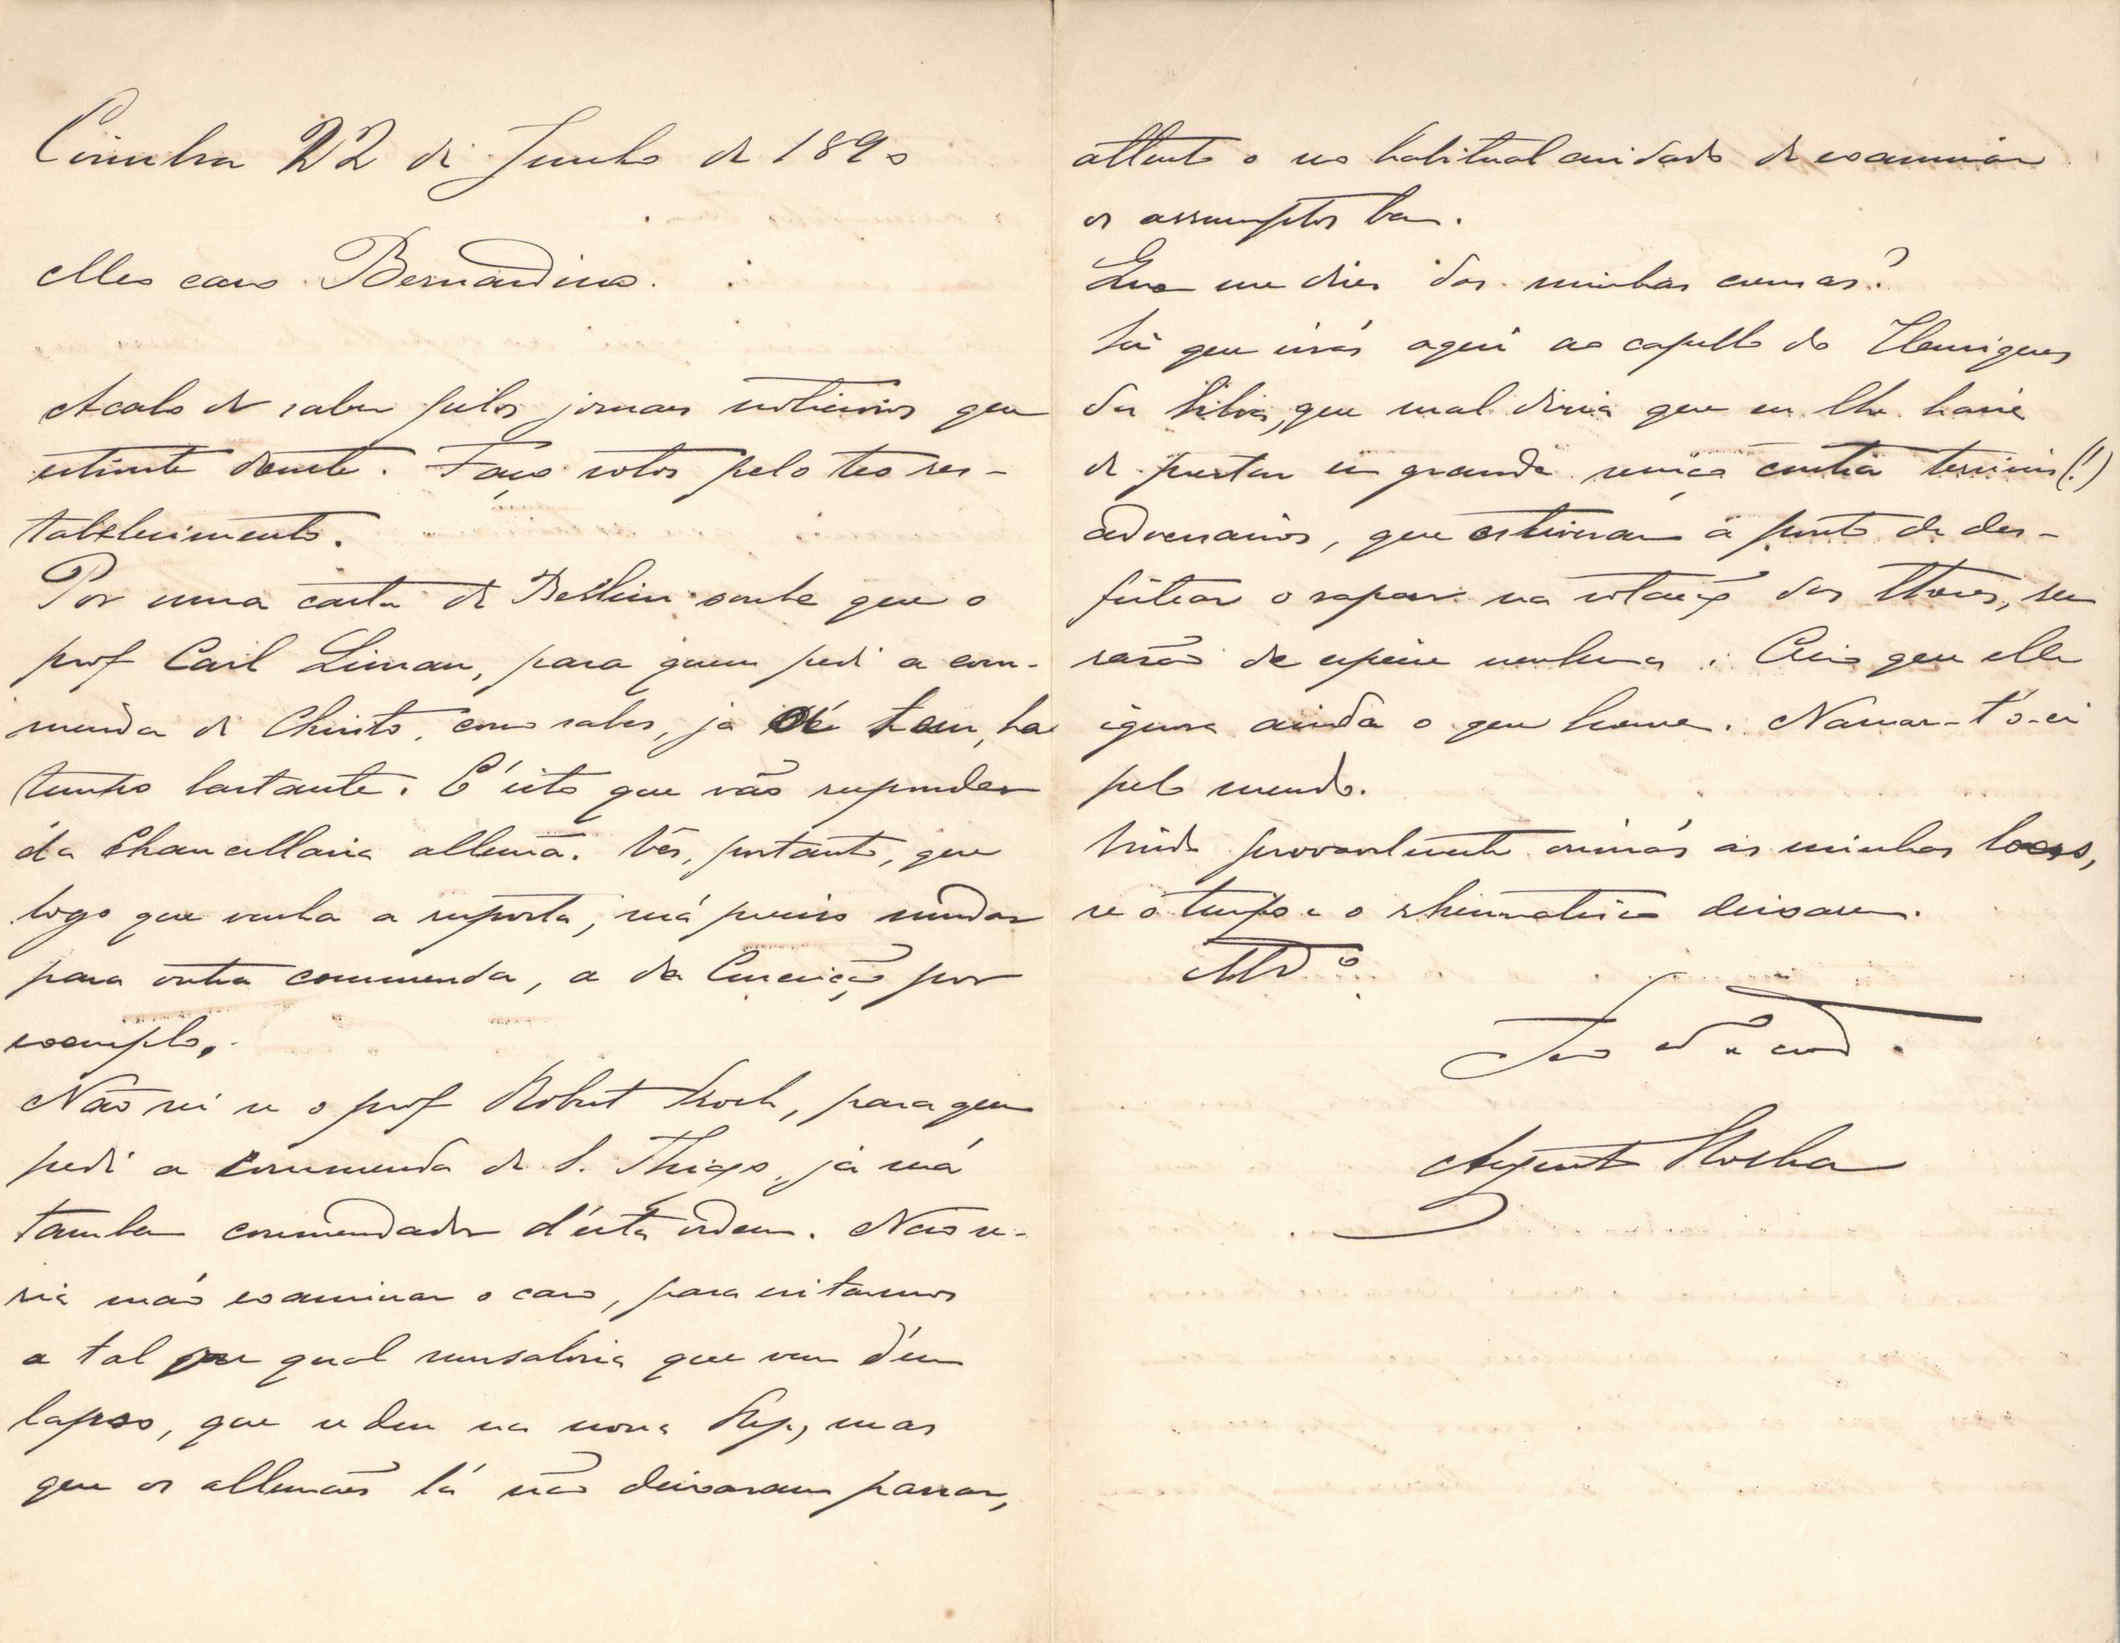 Coimbra 22 de Junho de 1890
Meu caro Bernardino.
Acabo de saber pelos jornaes noticiosos que
estiveste doente. Faço votos pelo teu res-
tabelecimento.
Por uma carta de Berlim soube que o
prof Carl Liman, para quem pedi a com-
menda de Christo, como sabes, já a tem, ha
tempo bastante. É isto que vão responder
da Chancellaria allemã. Vês, portanto, que
logo que venha a resposta, será preciso mudar
para outra commenda, a da Conceição por
exemplo.
Não sei se o prof Robert Koch, para quem
pedi a commenda de S. Thiago, já será
tambem commendador d'esta ordem. Não se-
ria máo examinar o caso, para evitarmos
a tal ou qual semsaboria que vem d'um
lapso, que se deu na nossa Rep., mas
que os allemães lá não deixaram passar,
attento o seu habitual cuidado de examinar
os assumptos bem.
Que me dizes das minhas cunsas?
Sei que virás aqui ao capello do Henriques
da Silva, que mal diria que eu lhe havia
de prestar um grande serviço contra terriveis (!)
adversarios, que estiveram a ponto de des-
feitear o rapaz na votação dos llores, sem
rasão de especie nenhuma. Creio que elle
ignora ainda o que houve. Narrar-t'o-ei
pelo miudo.
Vindo provavelmente ouvirás as minhas
se o tempo e o rheumatismo deixarem.
Ad.º
Teu
Augusto Rocha